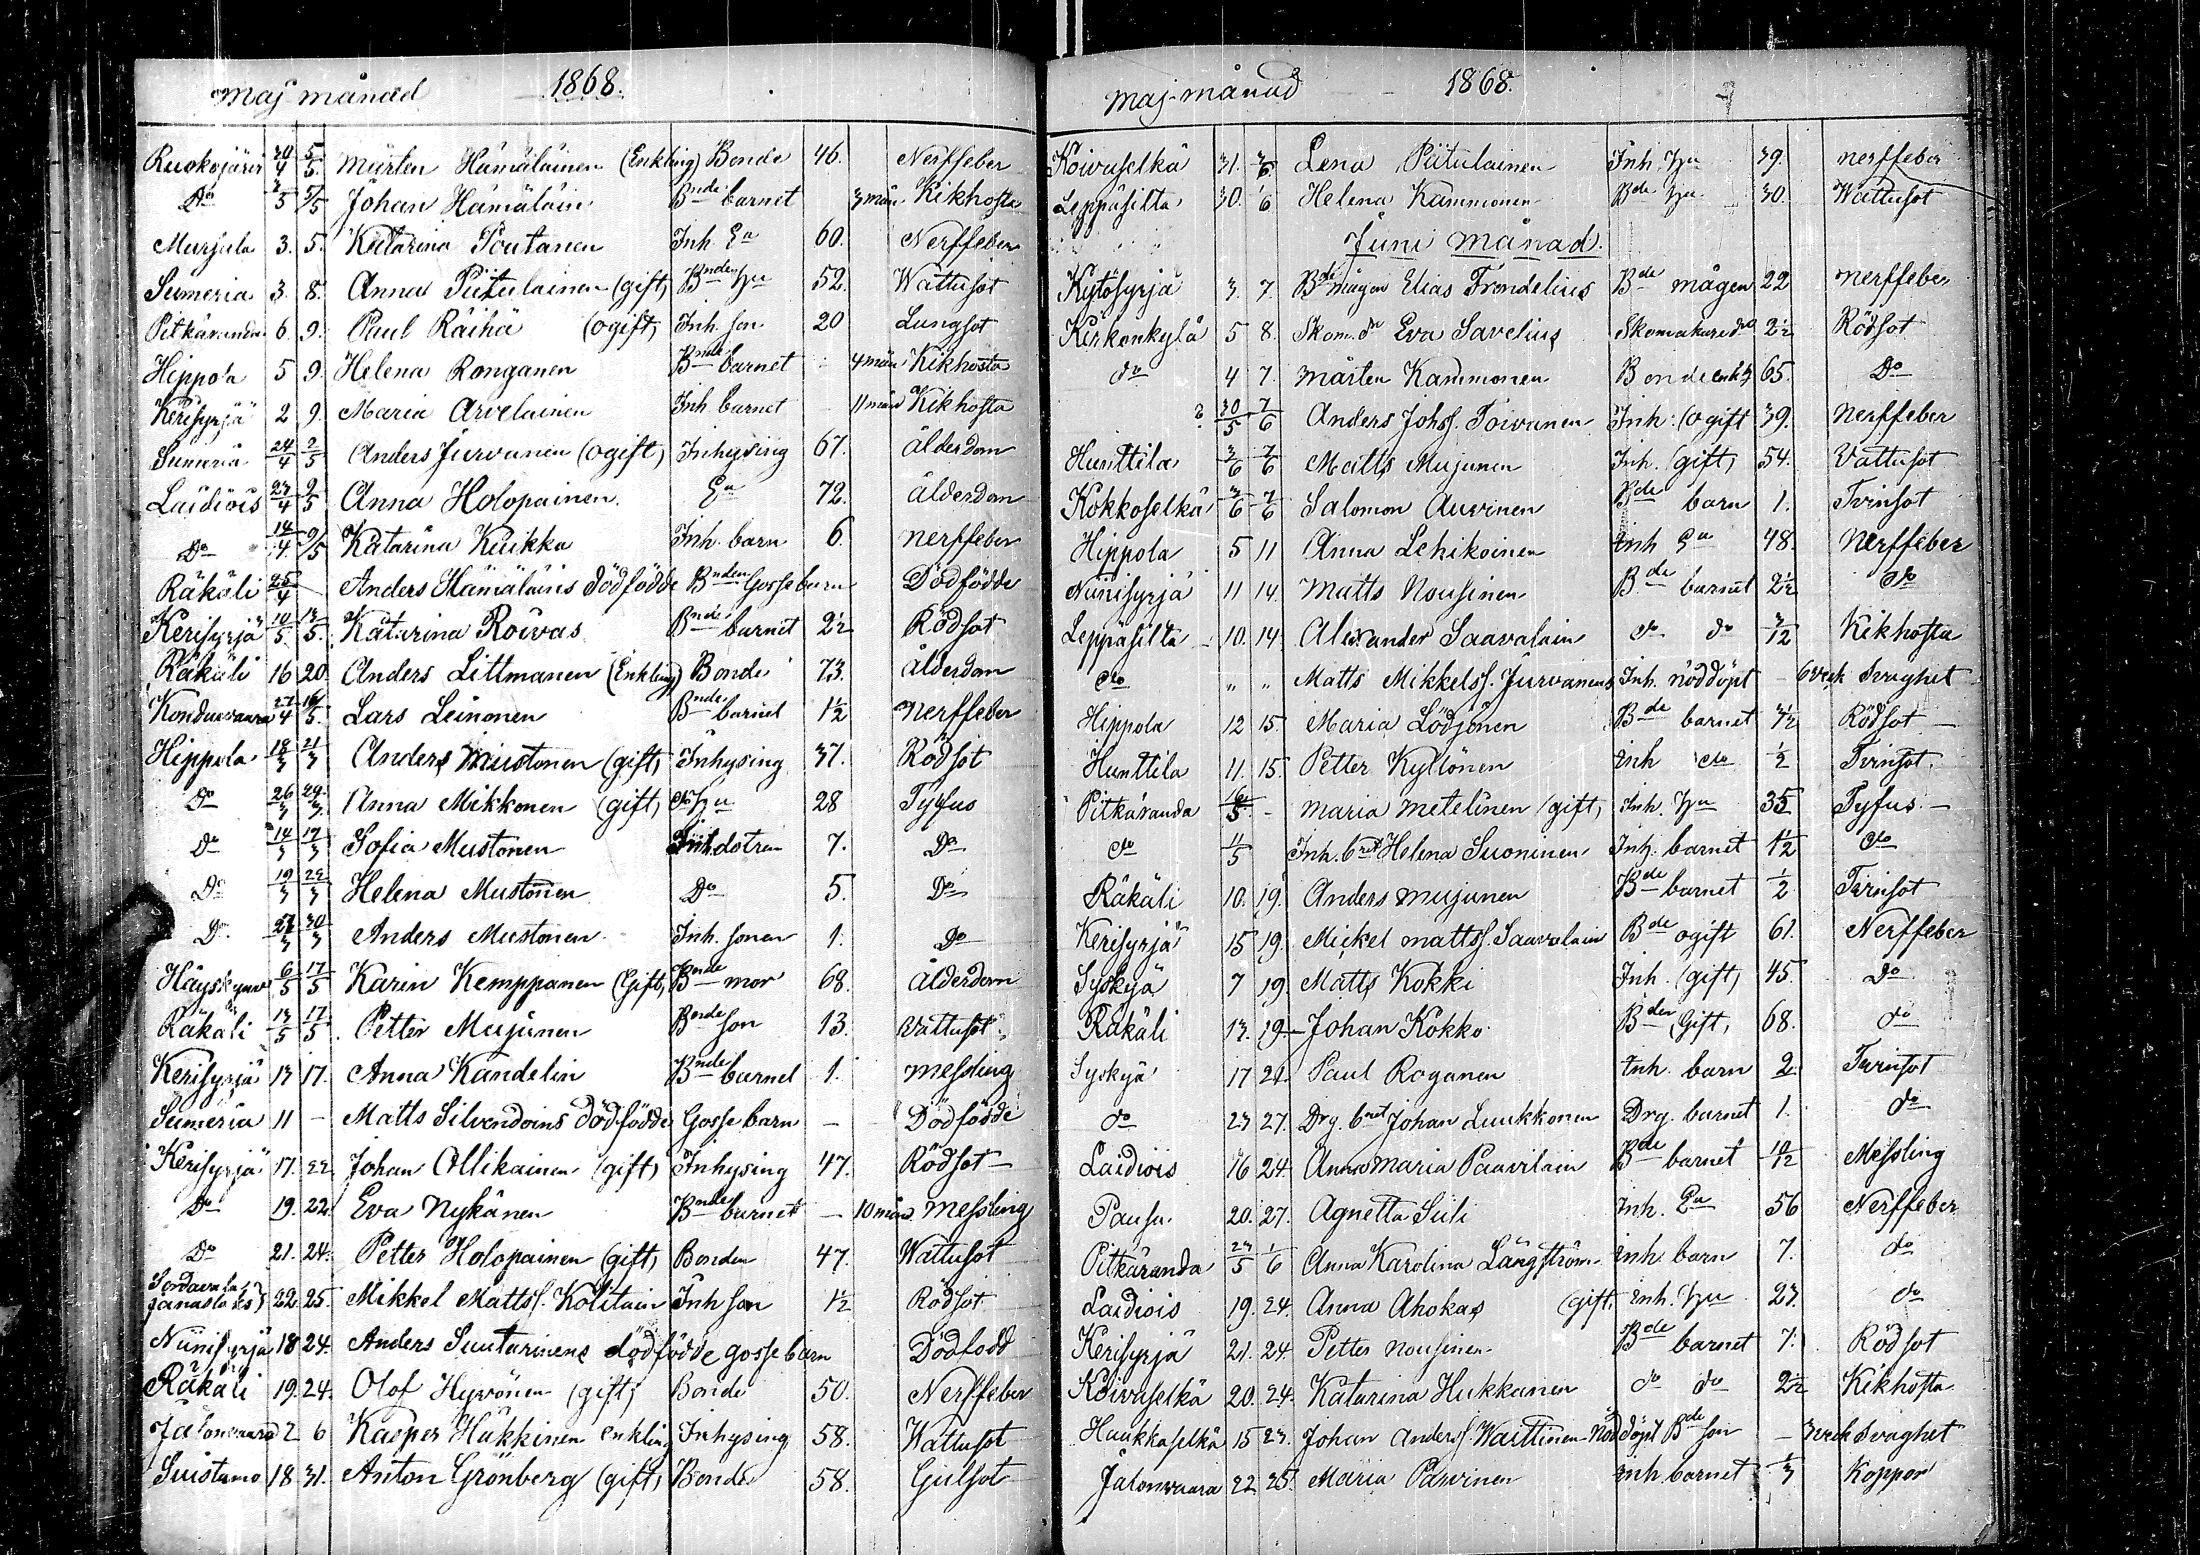 Maj månad 1868.
Ruskojärvi 30/4 5/5. Mårten Hämäläinen (Enkling) Bonde 46. Nerffeber
Do 2/5 5/5 Johan Hämäläin Bnde barnet 3 mån Kikhosta
Mursula 3. 5. Katarina Poutanen Inh. Ea 60. Nerffeber
Sumeria 3. 8. Anna Piitulainen (gift) Bnden hu 52. Wattusot
Pitkäranda 6. 9. Paul Räihä (ogift) Inh. son 20 Lungsot
Hippola 5 9. Helena Ronganen Bnde barnet 4 mån Kikhosta
Kerisyrjä 2 9. Maria Arvelainen Inh barnet 11 mån Kikhosta
Sumeria 24/4 2/5 Anders Jurvanen (ogift) Inhysing 67. Ålderdom
Laidiois 23/4 9/5 Anna Holopainen Ea 72. Ålderdom
Do 14/4 9/5 Katarina Kuikka Inh. barn 6 Nerffeber
Räkäli 25/4 Anders Hämäläins dödfödde Bnden Gossebarn Dödfödde
Kerisyrjä 10/5 13/5. Katarina Roivas Bnde barnet 2½ Rödsot
Räkäli 16 20. Anders Littmanen (Enkling) Bonde 73. Ålderdom
Konduvaara 27/4 16/5. Lars Leinonen Bnde barnet 1½ Nerffeber
Hippola 18/3 21/3 Anders Mustonen (gift) Inhysing 37. Rödsot
Do 26/3 29/3. Anna Mikkonen (gift) do hu 28 Tyfus
Do 14/3 17/3 Sofia Mustonen Inh. dotren 7. Do
Do 19/3 22/3 Helena Mustonen Do 5. Do
Do 27/3 30/3 Anders Mustonen Inh. sonen 1. Do
6/5 17/5 Karin Kemppanen (Gift) Bonde mor 68. Ålderdom
Räkäli 13/5 17/5. Petter Mujunen Bonde son 13. Vattusot
Kerisyrjä 13 17. Anna Kandelin Bnde barnet 1. Messling
Sumeria 11 – Matts Silvendoins Dödfödde Gosse barn – Dödfödde
Kerisyrjä 17. 22 Johan Ollikainen (gift) Inhysing 47. Rödsot –
Do 19. 22. Eva Nykänen Bnde barnet – 10 mån Messling
Do 21. 24. Petter Holopainen (gift) Bonden 47. Wattusot
Sordavala, 22. 25. Mikkel Mattss. Kolitain Inh son 1½ Rödsot
Niinisyrjä 18 24. Anders Suutarinens dödfödde gossebarn Dödfödd
Räkäli 19. 24. Olof Hyvönen (gift) Bonde 50. Nerffeber
Jalonvaara 2 6 Kasper Häkkinen enkling Inhysing 58. Wattusot
Suistamo 18 31. Anton Grönberg (gift) Bonde 58. Gulsot
Maj-månad 1868.
Koivuselkä 31. 3/6 Lena Piitulainen Inh. hu 39. Nerffeber
Leppäsilta 30. 1/6 Helena Kammonen Bde hu 30. Wattusot
Juni månad.
Kytösyrjä 3. 7. Bde mågen Elias Frondelius Bde mågen 22 Nerffeber
Kirkonkylä 5 8. Skom. dr Eva Savelius Skomakaredr 2½ Rödsot
do 4 7. Mårten Kammonen Bonde enkl 65. Do
? 30/5 7/6 Anders Johss. Toivanen Inh: (ogift 39. Nerffeber
Hunttila 3/6 7/6 Matts Mujunen Inh. (gift) 54. Vattusot
Kokkoselkä 3/6 7/6 Salomon Auvinen Bde barn 1. Tvinsot
Hippola 5 11 Anna Lehikoinen Inh Ea 48. Nerffeber
Niinisyrjä 11 14. Matts Nousinen Bde barnet 2½ do
Leppäsilta 10. 14. Alexander Saavalain do do 3/12 Kikhosta
do " " Matts Mikkelss. Jurvanens Inh. nöddöpt – 6 veck Svaghet
Hippola 12 15. Maria Lödjönen Bde barnet 3½ Rödsot –
Hunttila 11. 15. Petter Kyllönen Inh do ½ Tvinsot.
Pitkäranda 16/5. – Maria Metelinen (gift) Inh. hu 35 Tyfus. –
do 11/5 Inh. bnet Helena Suoninen Inh. barnet 1½ do
Räkäli 10. 19. Anders Mujunen Bde barnet ½ Tvinsot
Kerisyrjä 15 19. Mickel Mattss. Saavalain Bde ogift 61. Nerffeber
Syskyä 7 19 Matts Kokki Inh. (gift) 45. Do
Räkäli 13. 19. – Johan Kokko Bden Gift, 68. do
Syskyä 17 21. Paul Roganen Inh. barn 2. Tvinsot
do 23 27. Drg. bnet Johan Luukkonen Drg. barnet 1. do
Laidiois 16 24. Anna Maria Paavilain Bde barnet 10/12 Messling
Pausu 20. 27. Agnetta Siili Inh. Ea 56 Nerffeber
Pitkäranda 23/5 1/6 Anna Karolina Långström Inh. barn 7. do
Laidiois 19. 24. Anna Ahokas (gift. Inh. hu 23. do
Kerisyrjä 21. 24. Petter Nousinen Bde barnet 7. Rödsot
Koivuselkä 20. 24. Katarina Hukkanen do do 2½ Kikhosta
Haukkaselkä 15 23. Johan Anderss. Waittinen Nöddöpt Bde son – 3 veck Svaghet
Jalonvaara 22 25. Maria Parvinen Inh. barnet 1/3 Koppor